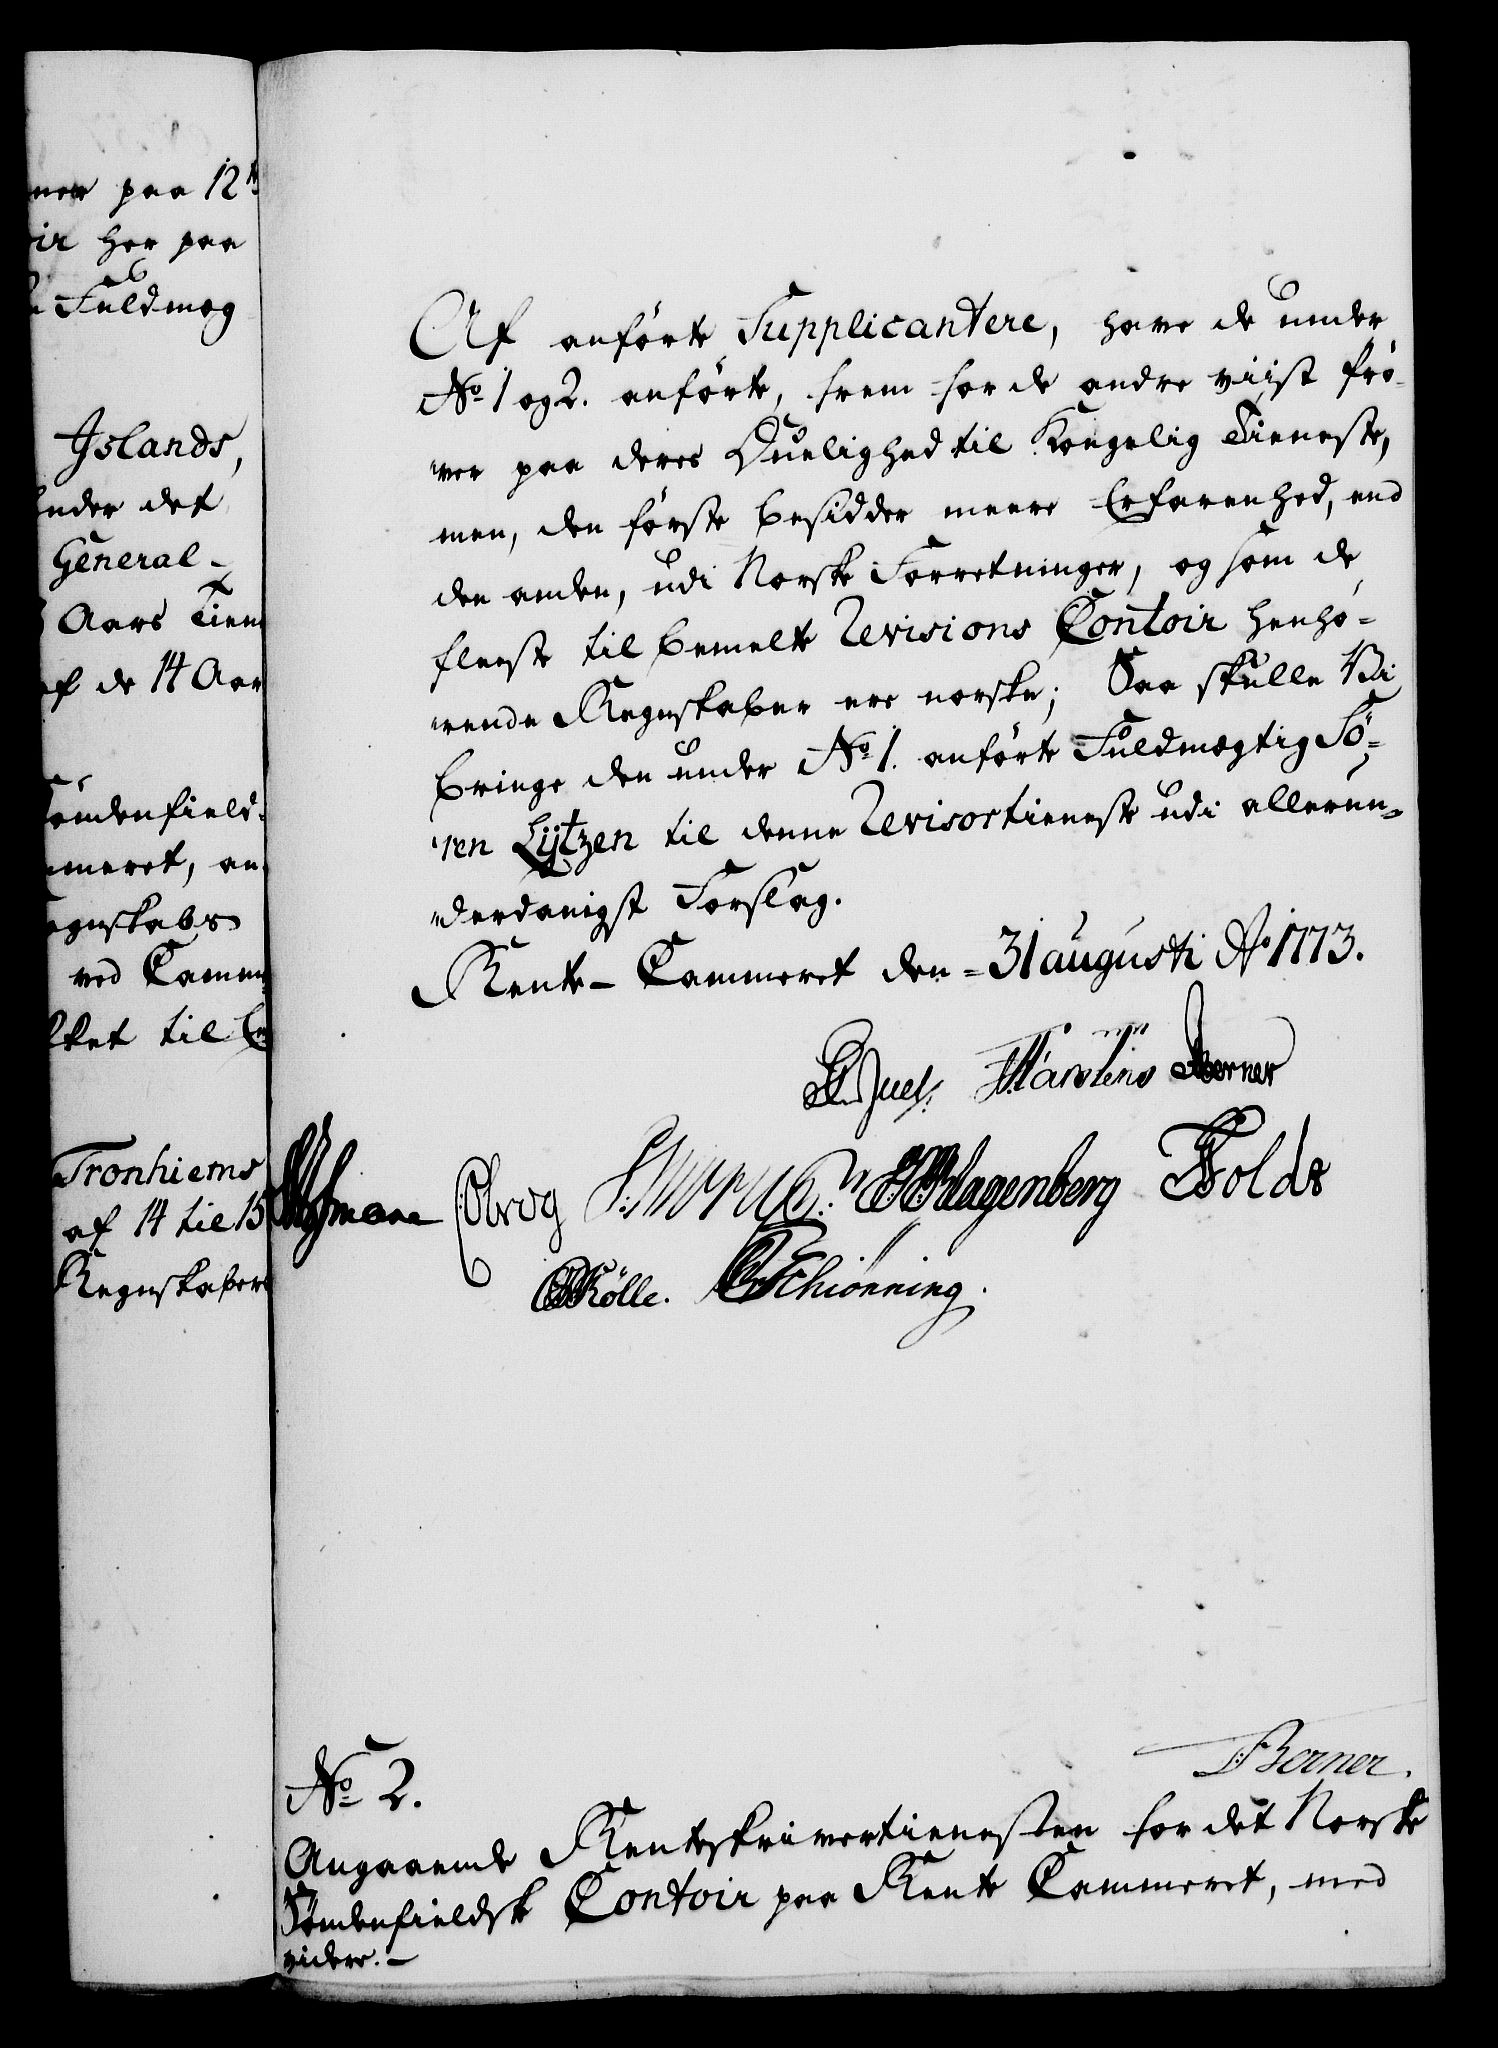 ner paa 12te
oir her paa
Fuldmæg
Jslands,
under det
General-
Aars Tien
af de 14 Aar
Søndenfield-
mmeret, an-
egnskabs
ved Camm
kket til
Tronhiems
af 14 til 15
Regnskaber
Af anførte Supplicantere, have de under
No. 1 og 2. anførte, frem for de andre viist Prø-
ver paa deres Duelighed til Kongelig Tieneste,
men, den første besidder meere Erfarenhed, end
den anden, udi Norske Forretninger, og som de
fleeste til bemelte Revisions Contoir henhø-
rende Regnskaber ere norske; Saa skulle Vi
bringe den under No. 1. anførte Fuldmægtig Sö-
ren Lijtzen til denne Revisortieneste udi allerun-
derdanigst Forslag.
Rente-Cammeret den 31 augusti Ao 1773.
Juel. Martens Berner
Olrog Klagenberg Holdt
Rölle. Schiönning.
Berner.
No. 2.
Angaaende Renteskrivertienesten for det Norske
Søndenfieldske Contoir paa Rente Cammeret, med
videre.